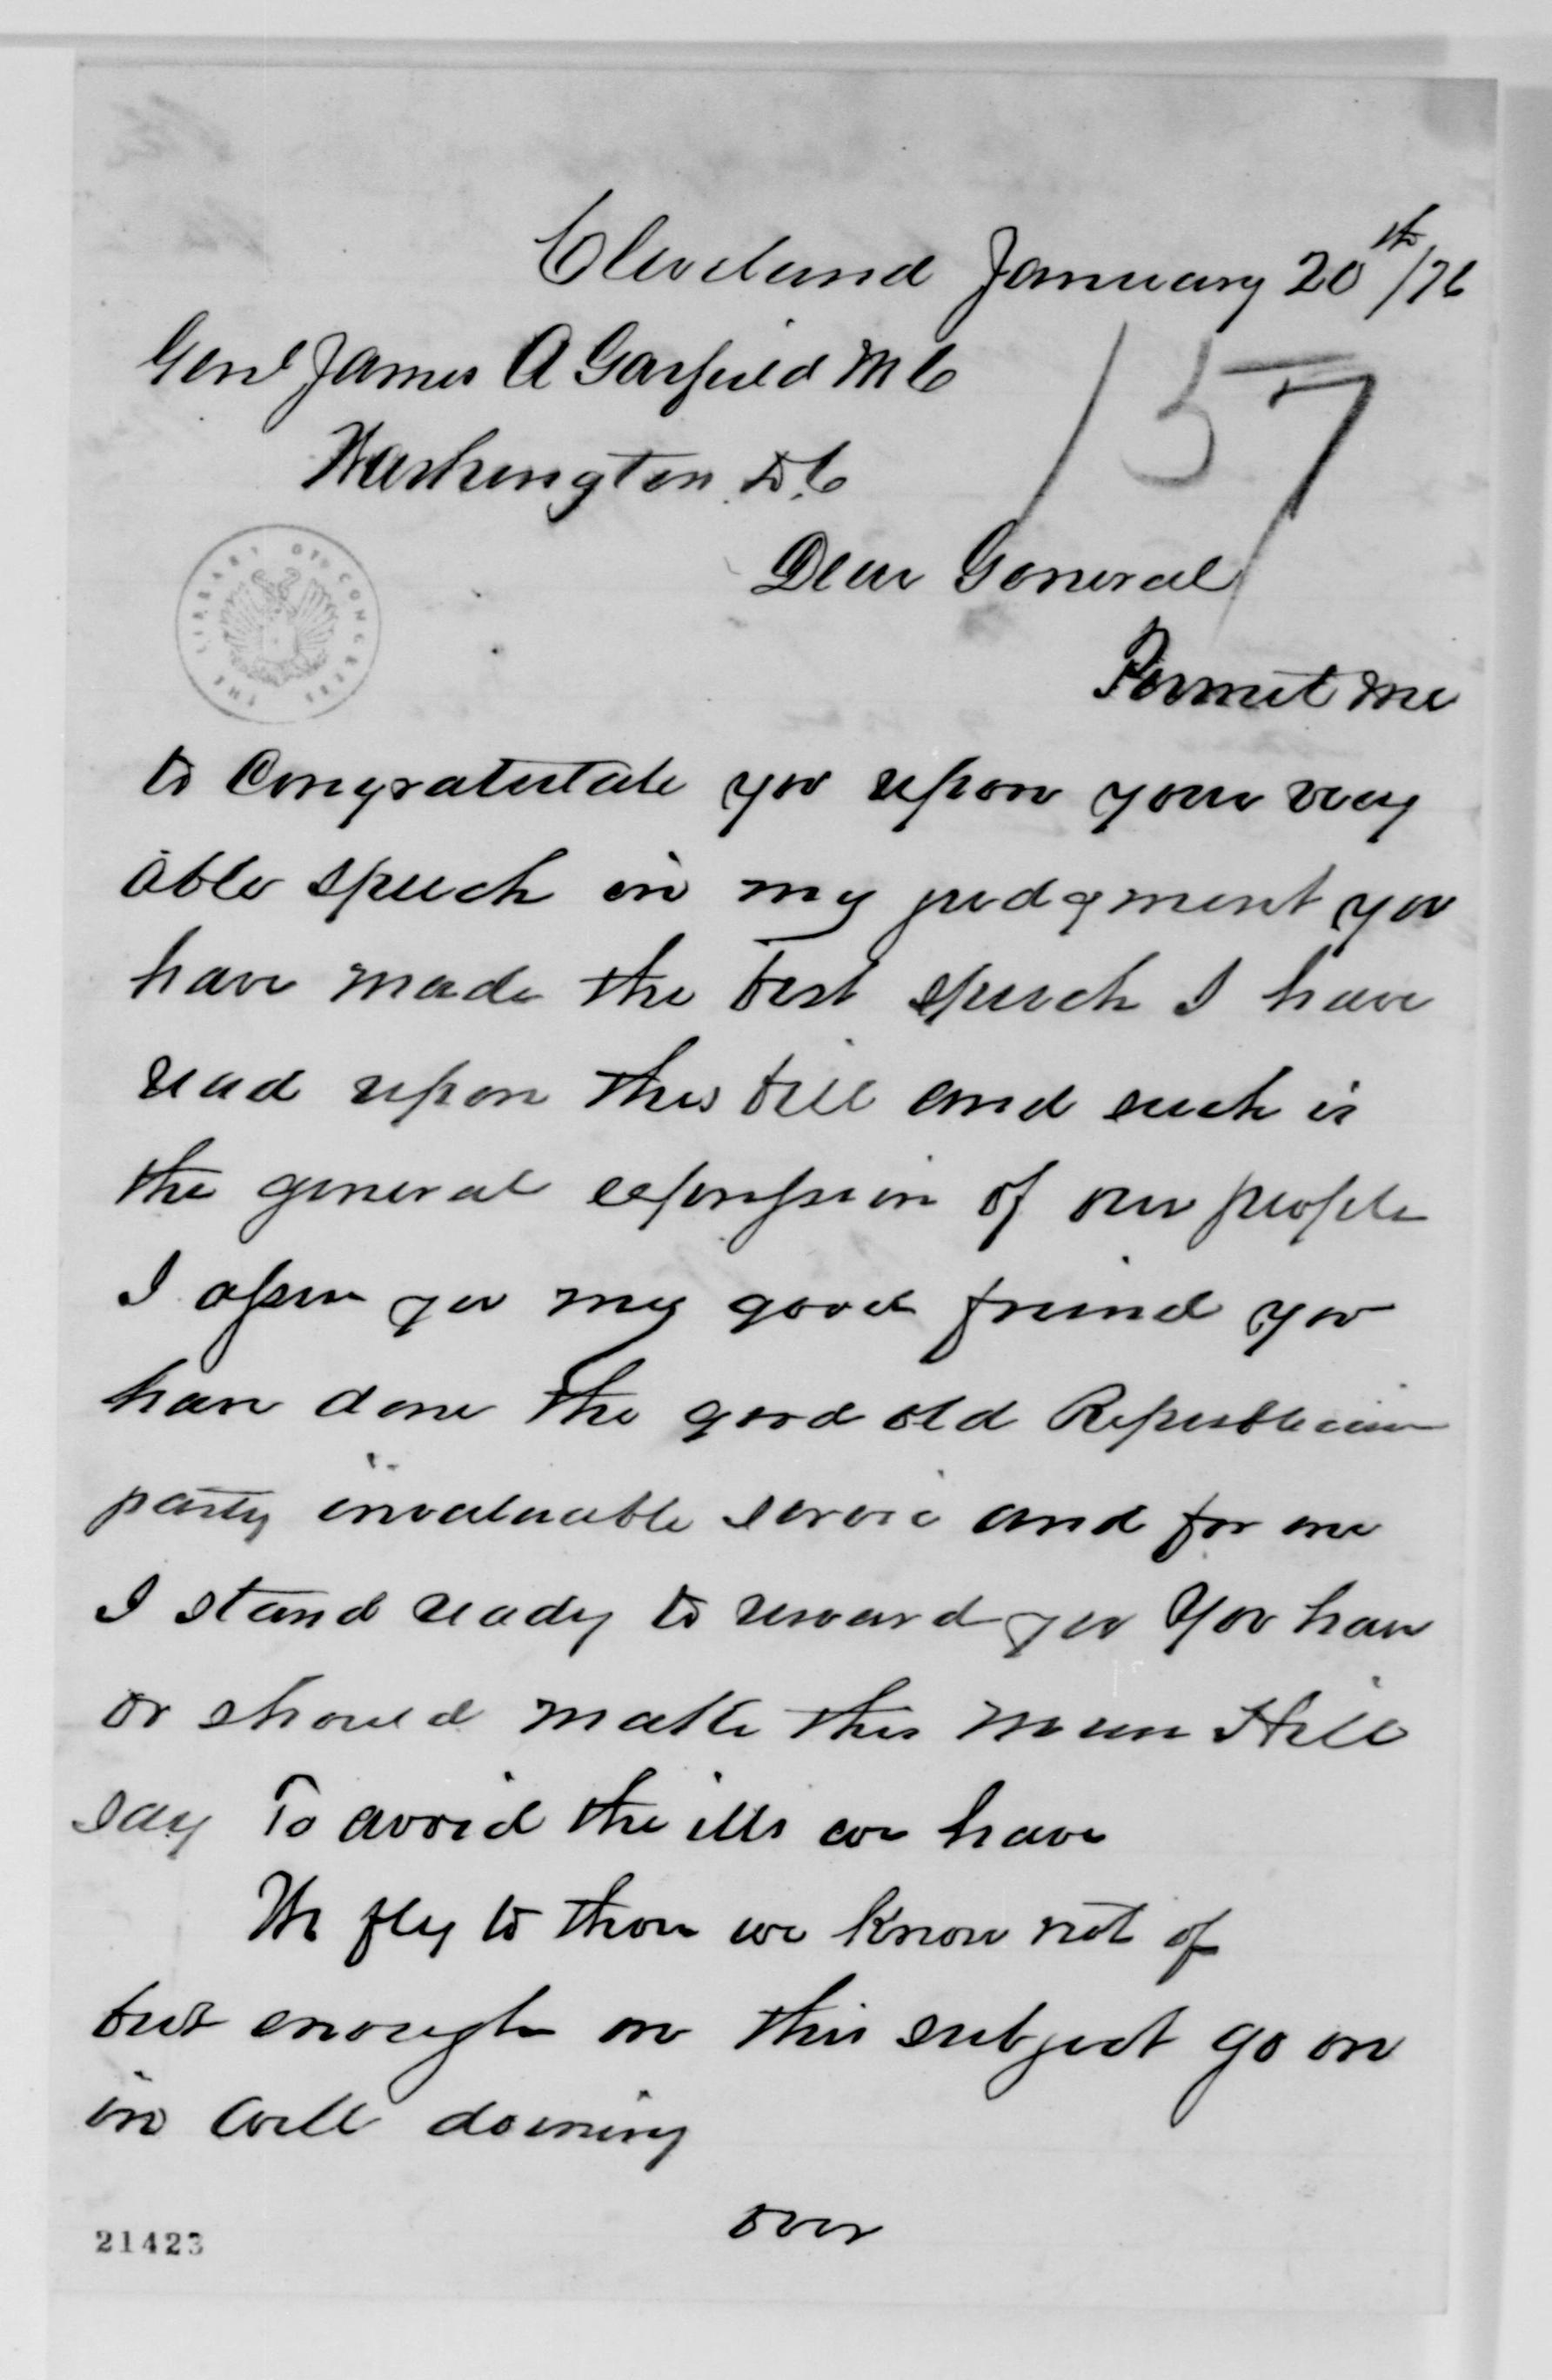 Cleveland January 20th/76
Genl James A Garfield M C
157
Washington D.C
Dear General
THE LIBRARY OF CONGRESS
Permit me
to Congratulate you upon your very
able speech in my judgment you
have made the best speech I have
read upon this bill and such is
the general expression of our people
I assure you my good friend you
have done the good old Republican
party invaluable service and for me
I stand ready to reward you You have
or should make this man Hill
say To avoid the ills we have
We fly to those we know not of
but enough on this subject go on
in well doining
over
21423